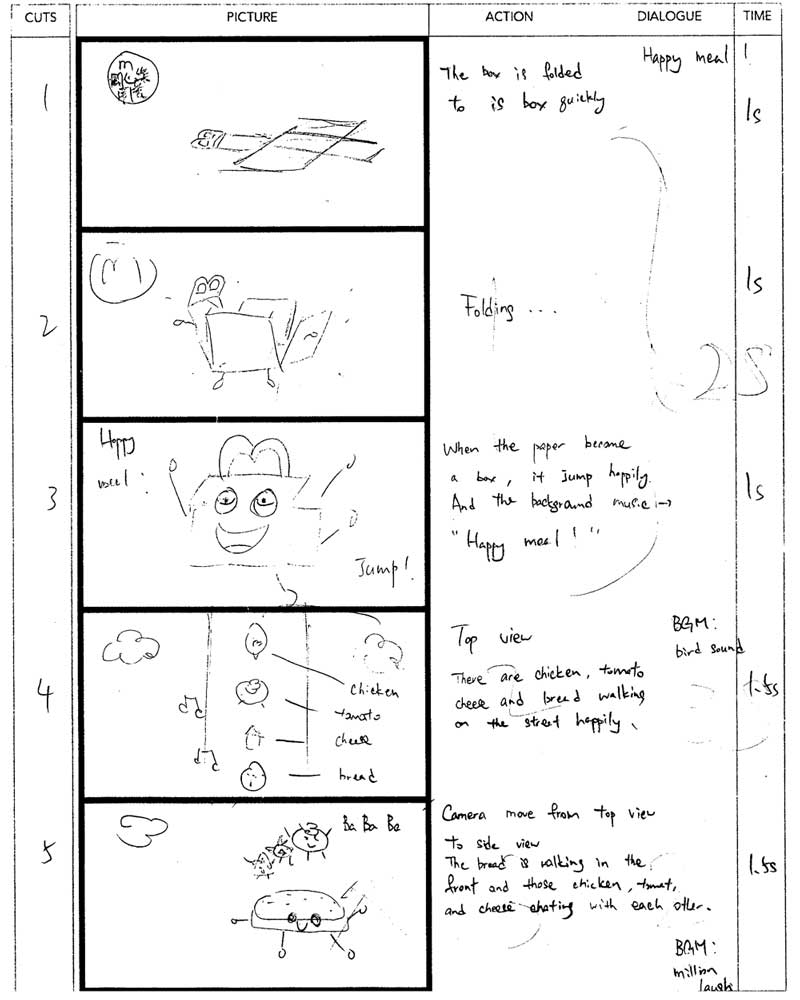 CUTS PICTURE ACTION DIALOGUE TIME
1
m
The box is folded
to is box quickly
Happy meal !
1s
2
m
Folding ...
1s
2S
3
Happy
meel !
Jump!
When the paper become
a box, it Jump happily.
And the background music →
"Happy meel !"
1s
4
chicken
tomato
cheese
bread
Top view
There are chicken, tomato
cheese and bread walking
on the street happily.
BGM:
bird sound
1.5s
5
Ba Ba Ba
Camera move from top view
to side view
The bread is walking in the
front and those chicken, tomat,
and cheese chating with each other.
BGM:
million
laugh
1.5s